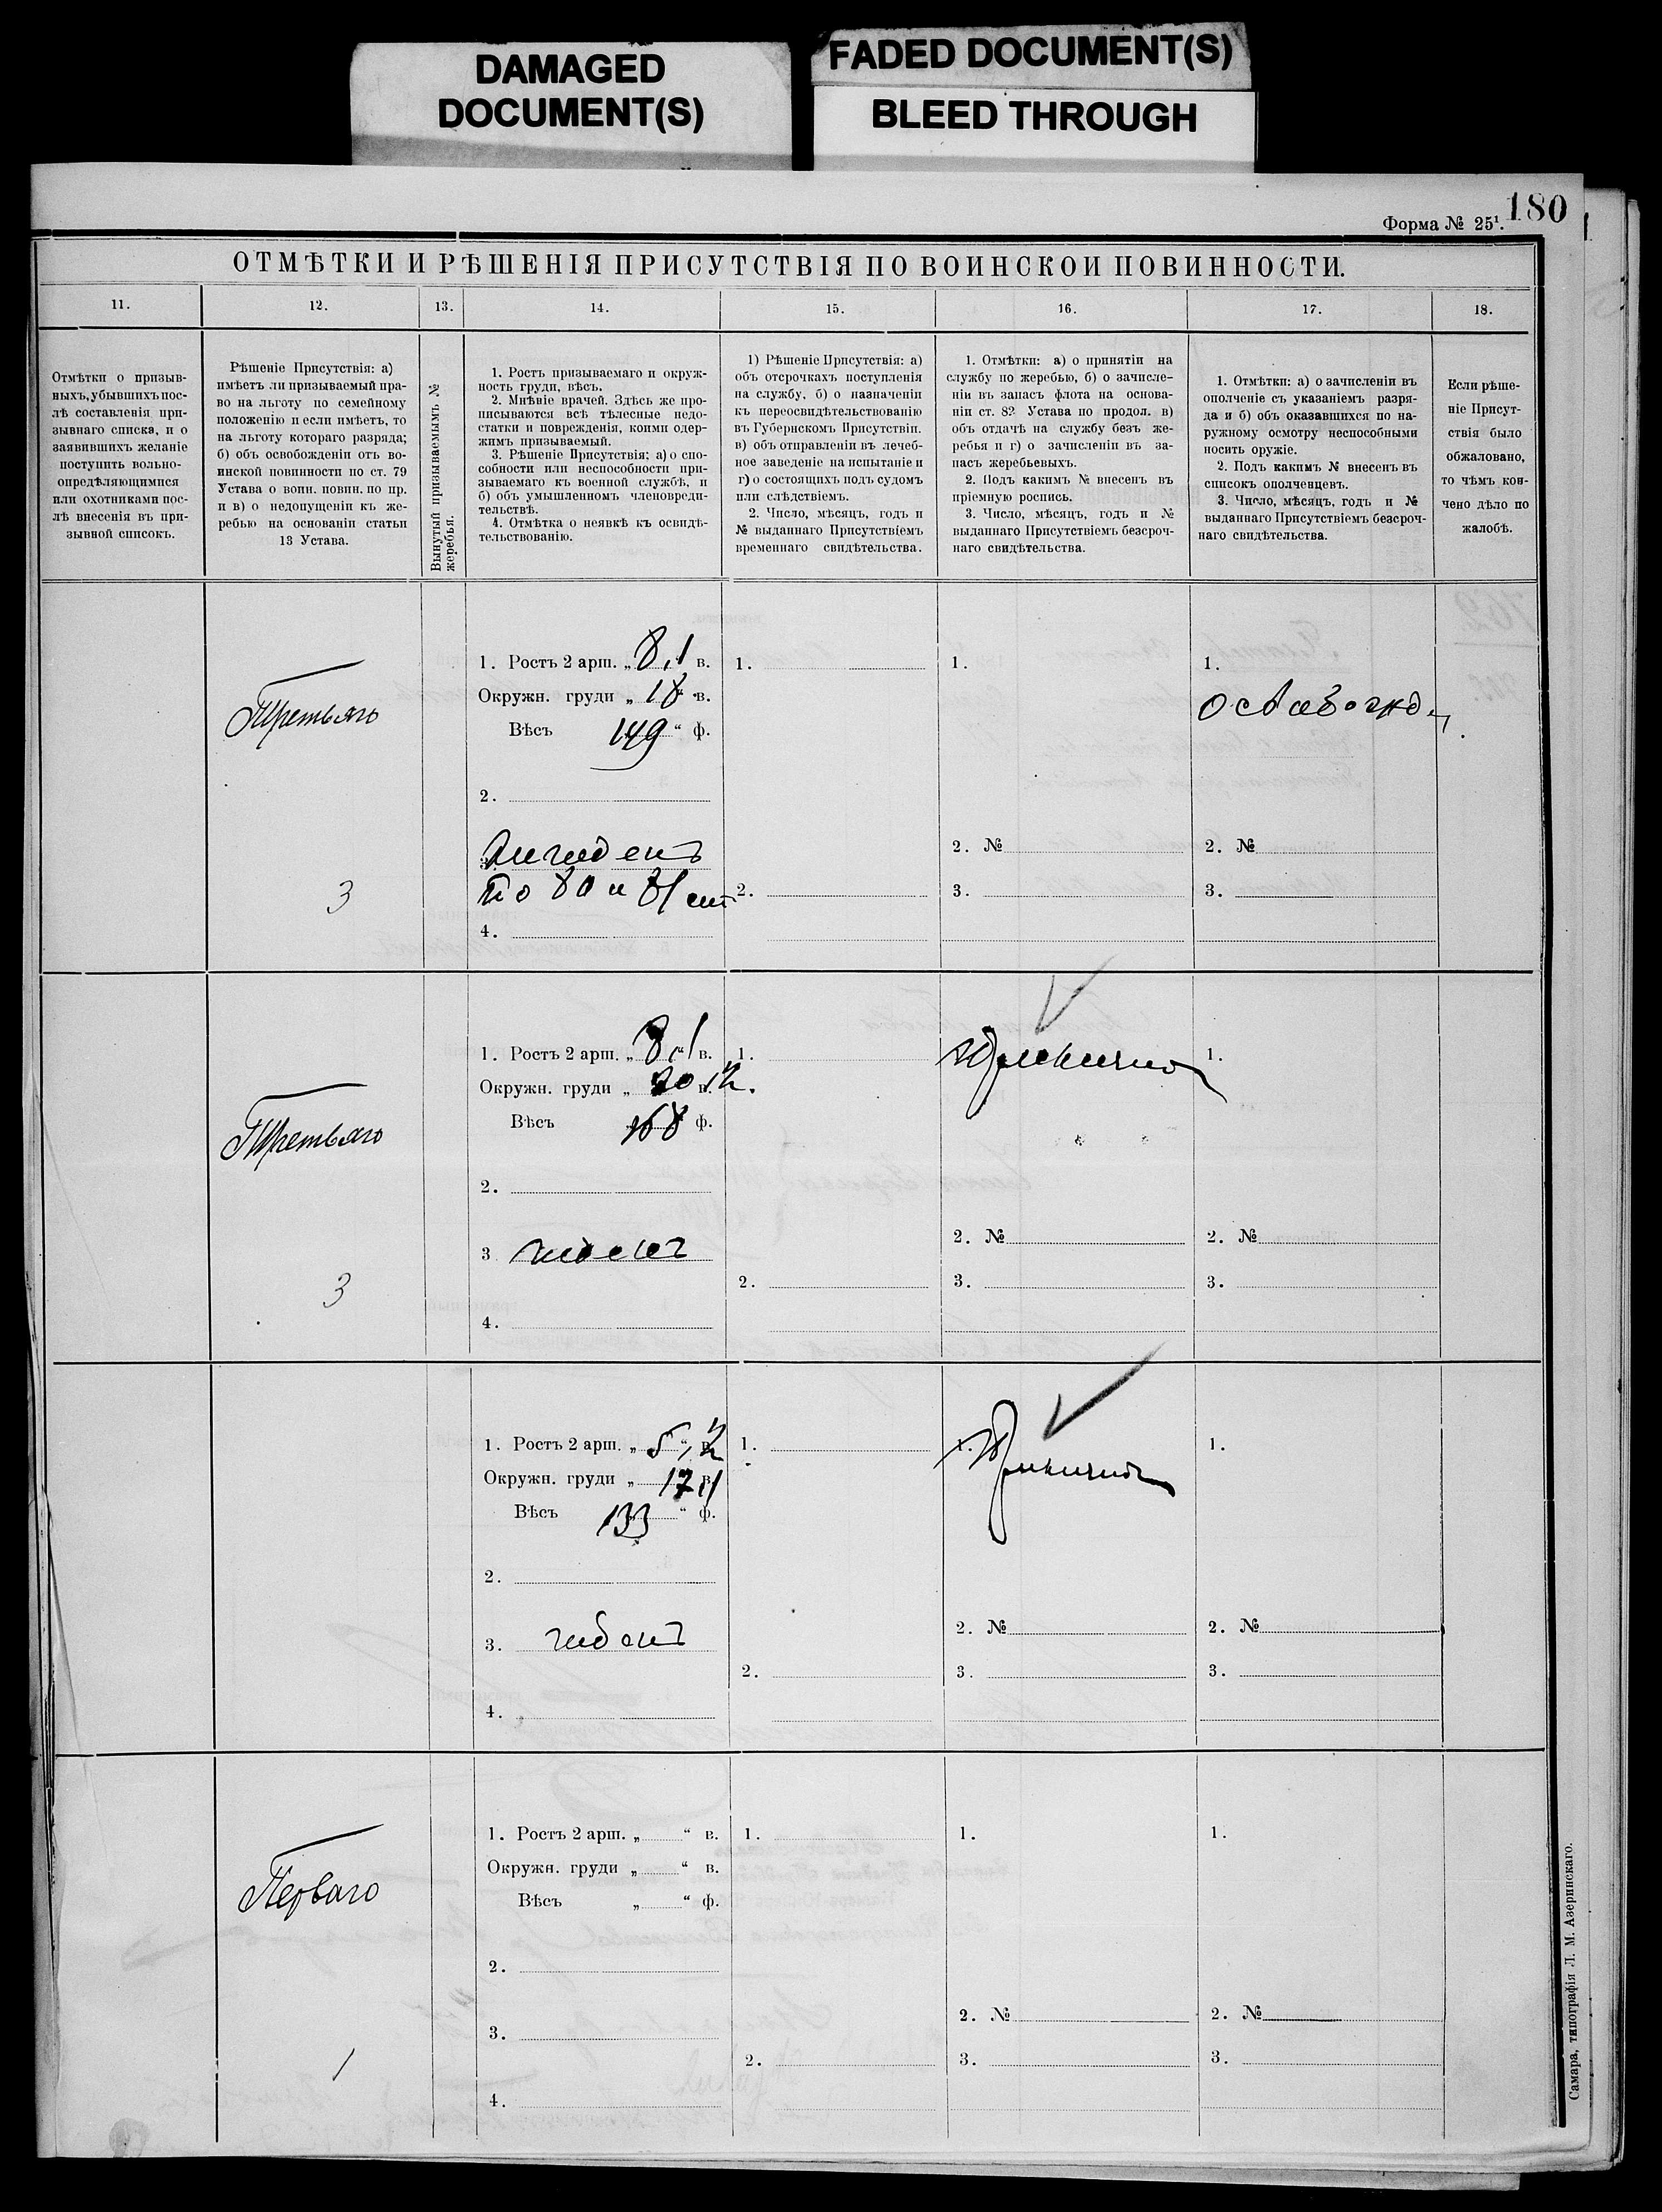 DAMAGED
DOCUMENT(S)
FADED DOCUMENT(S)
BLEED THROUGH
180
Форма № 25¹.
ОТМѢТКИ И РѢШЕНІЯ ПРИСУТСТВІЯ ПО ВОИНСКОИ ПОВИННОСТИ.
11.
12.
13.
14.
15.
16.
17.
18.
Отмѣтки о призыв-
ныхъ, убывшихъ пос-
лѣ составленія при-
зывнаго списка, и о
заявившихъ желаніе
поступить вольно-
опредѣляющимися
или охотниками пос-
лѣ внесенія въ при-
зывной списокъ.
Рѣшеніе Присутствія: а)
имѣетъ ли призываемый пра-
во на льготу по семейному
положенію и если имѣетъ, то
на льготу котораго разряда;
б) объ освобожденіи отъ во-
инской повинности по ст. 79
Устава о воин. повин. по пр.
и в) о недопущеніи къ же-
ребью на основаніи статьи
13 Устава.
Вынутый призываемымъ №
жеребья.
1. Ростъ призываемаго и окруж-
ность груди, вѣсъ.
2. Мнѣніе врачей. Здѣсь же про-
писываются всѣ тѣлесные недо-
статки и поврежденія, коими одер-
жимъ призываемый.
3. Рѣшеніе Присутствія; а) о спо-
собности или неспособности при-
зываемаго къ военной службѣ, и
б) объ умышленномъ членовреди-
тельствѣ.
4. Отмѣтка о неявкѣ къ освидѣ-
тельствованію.
1) Рѣшеніе Присутствія: а)
объ отсрочкахъ поступленія
на службу, б) о назначеніи
къ переосвидѣтельствованію
въ Губернскомъ Присутствіи.
в) объ отправленіи въ лечеб-
ное заведеніе на испытаніе и
г) о состоящихъ подъ судомъ
или слѣдствіемъ.
2. Число, мѣсяцъ, годъ и
№ выданнаго Присутствіемъ
временнаго свидѣтельства.
1. Отмѣтки: а) о принятіи на
службу по жеребью, б) о зачисле-
ніи въ запасъ флота на основа-
ніи ст. 82 Устава по продол. в)
объ отдачѣ на службу безъ же-
ребья и г) о зачисленіи въ за-
пасъ жеребьевыхъ.
2. Подъ какимъ № внесенъ въ
пріемную роспись.
3. Число, мѣсяцъ, годъ и №
выданнаго Присутствіемъ безсроч-
наго свидѣтельства.
1. Отмѣтки: а) о зачисленіи въ
ополченіе съ указаніемъ разря-
да и б) объ оказавшихся по на-
ружному осмотру неспособными
носить оружіе.
2. Подъ какимъ № внесенъ въ
списокъ ополченцевъ.
3. Число, мѣсяцъ, годъ и №
выданнаго Присутствіемъ безсроч-
наго свидѣтельства.
Если рѣше-
ніе Присут-
ствія было
обжаловано,
то чѣмъ кон-
чено дѣло по
жалобѣ.
Третьяго
3
1. Ростъ 2 арш. „ 8,1 в.
Окружн. груди „ 18 в.
Вѣсъ 149 “ ф.
2.
3.
по 80 и 81 ст
4.
1.
2.
1.
2. №
3.
1.
освобожд
2. №
3.
Третьяго
3
1. Ростъ 2 арш. „ 8,1 в.
Окружн. груди „ 20 1/2 в.
Вѣсъ 168 ф.
2.
3 годенъ
4.
1.
2.
Принятъ
2. №
3.
1.
2. №
3.
1. Ростъ 2 арш. „ 5,1/2 в.
Окружн. груди „ 17,1 в.
Вѣсъ 133 “ ф.
2.
3. годенъ
4.
1.
2.
1. Принятъ
2. №
3.
1.
2. №
3.
Перваго
1
1. Ростъ 2 арш. „ “ в.
Окружн. груди „ “ в.
Вѣсъ „ “ ф.
2.
3.
4.
1.
2.
1.
2. №
3.
1.
2. №
3.
Самара, типографія Л. М. Азеринскаго.